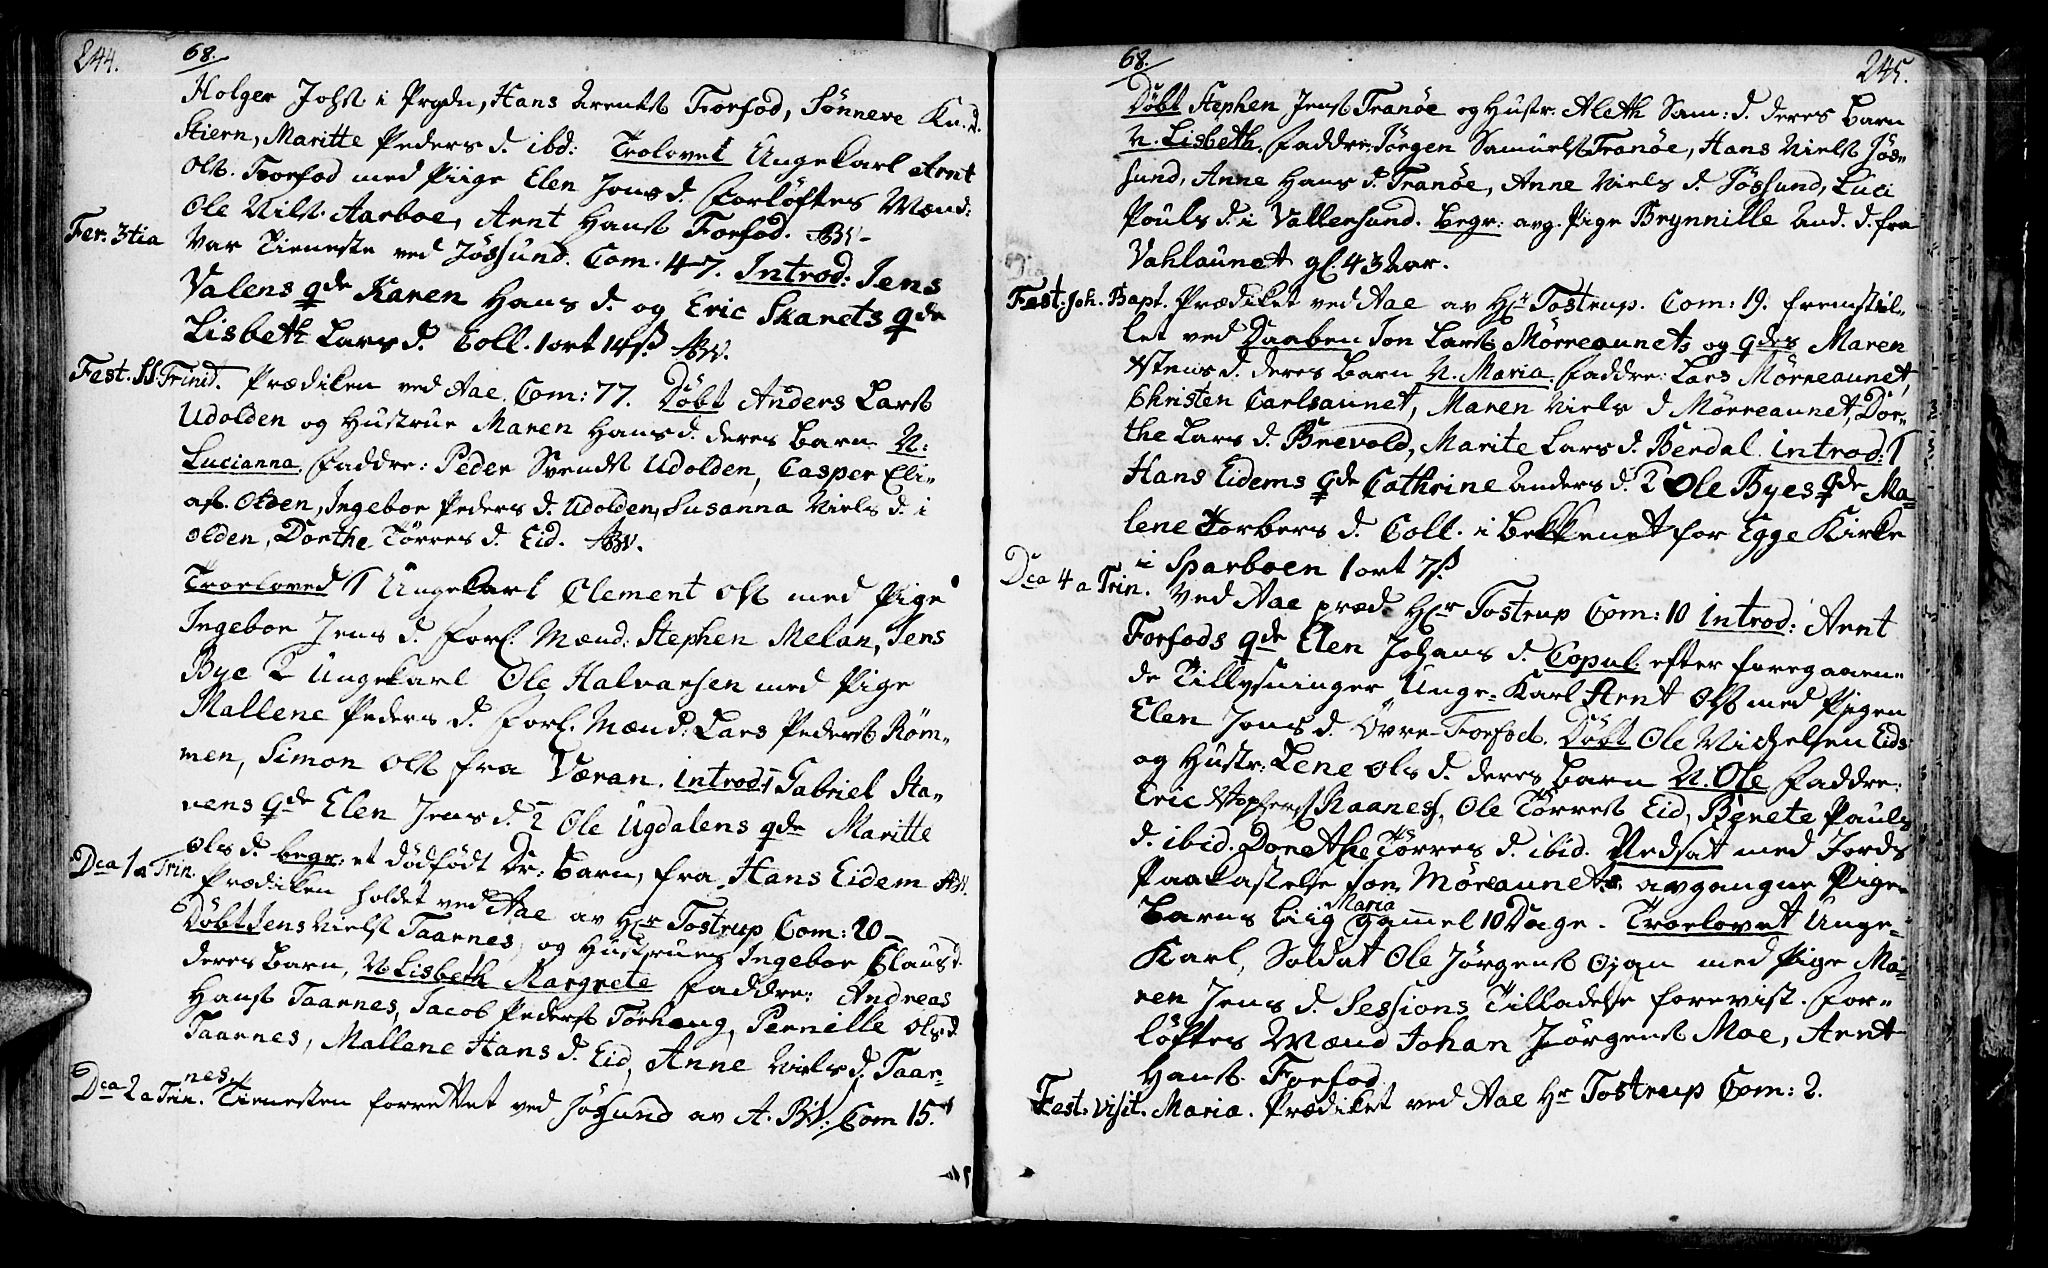 244.
68.
Holger Johs i Prgdn, Hans Arents Forfod, Sönneve Kn. d.
Stiern, Maritte Peders d. ibd: Trolovet Ungekarl Arnt
Ols. Forfod med Piige Elen Jons d. Forlöftes Mænd:
Ole Nils. Aarboe, Arnt Hans Forfod. ABW-
Fer. 3tia Var Tieneste ved Jössund. Com. 47. Introd: Jens
Valens qde Karen Hans d. og Eric Skarets qde
Lisbeth Lars d. Coll. 1 ort 14 s. ABW.
Fest. SS. Trinit. Prædiken ved Aae, Com: 77. Döbt Anders Lars
Udolden og Hustrue Maren Hans d. deres Barn N:
Lucianna, Faddre: Peder Svends Udolden, Casper Eli-
as. Olden, Ingebor Peders d. Udolden, Susanna Niels d. i
Olden, Dorthe Törres d. Eid. ABW.
Troeloved 1 Ungekarl Clement Ols med Pige
Ingebor Jens d. Forl. Mænd: Stephen Melan, Jens
Bye 2 Ungekarl Ole Halvarsen med Pige
Mallene Peders d. Forl. Mænd: Lars Peders Röm-
men, Simon Ols fra Væran. introd: 1 Gabriel Sta-
vens qde Elen Jens d. 2 Ole Ugdalens qde Maritte
Ols d. begr: et dödfödt Dr: Barn, fra Hans Eidem ABW.
Dca 1 a Trin. Prædiken holdet ved Aae av Hr Tostrup Com: 20-
Döbt Jens Niels Taarnes, og Hustruen Ingebor Claus d.
deres Barn, N Lisbeth Margrete Faddre: Andreas
Hans Taarnes, Jacob Peders Törhaug, Pernille Ols d.
Taarnes, Mallene Hans d. Eid, Anne Niels d. Taar-
nes.
Dca 2 a Trin. Tienesten forrettet ved Jössund av A. BW. Com 15.
68.
245.
Döbt Stephen Jens Tranöe og Hustr: Aleth Sam: d. deres Barn
N. Lisbeth, Faddre: Jörgen Samuels Tranöe, Hans Niels Jös-
sund, Anne Hans d. Tranöe, Anne Niels d. Jössund, Luci
Pouls d. i Vallersund. Begr: avg. Pige Brynnille And. d. fra
Vahlaunet gl. 43 Aar.
Fest. Joh. Bapt. Prædiket ved Aae av Hr Tostrup. Com: 19. fremstil-
let ved Daaben Jon Lars Mörreaunets og qdes Maren
Stens d. deres Barn N. Maria. Faddre: Lars Mörreaunet,
Christen Carlsaunet, Maren Niels d Mörreaunet, Dor-
the Lars d. Brevold, Marite Lars d. Berdal. introd: 1
Hans Eidems qde Cathrine Anders d. 2 Ole Byes qde Ma-
lene Torbers d. Coll. i Bekkenet for Egge Kirke
i Sparboen 1 ort 7 s.
Dca 4 a Trin. Ved Aae præd. Hr Tostrup Com: 10 introd: Arnt
Forfods qde Elen Johans d. Copul. efter foregaaen-
de Tillysninger Unge-Karl Arnt Ols med Pigen
Elen Jons d. Övre-Forfod. Döbt Ole Michelsen Eids
og Hustr: Lene Ols d. deres Barn N. Ole Faddre:
Eric Raanes, Ole Törres Eid, Berete Pauls
d. ibid. Dorethe Törres d. ibid. Nedsat med Jords
Paakastelse Jon Möreaunets avgangne Pige-
Barns Liig Maria gammel 10 Dage. Troelovet Unge-
Karl, Soldat Ole Jörgens Ojan med Pige Ma-
ren Jens d. Sessions Tilladelse forevist. For-
löftes Mænd Johan Jörgens Moe, Arnt
Hans. Forfod
Fest: Visit. Mariæ. Prædiket ved Aae Hr Tostrup Com: 2.